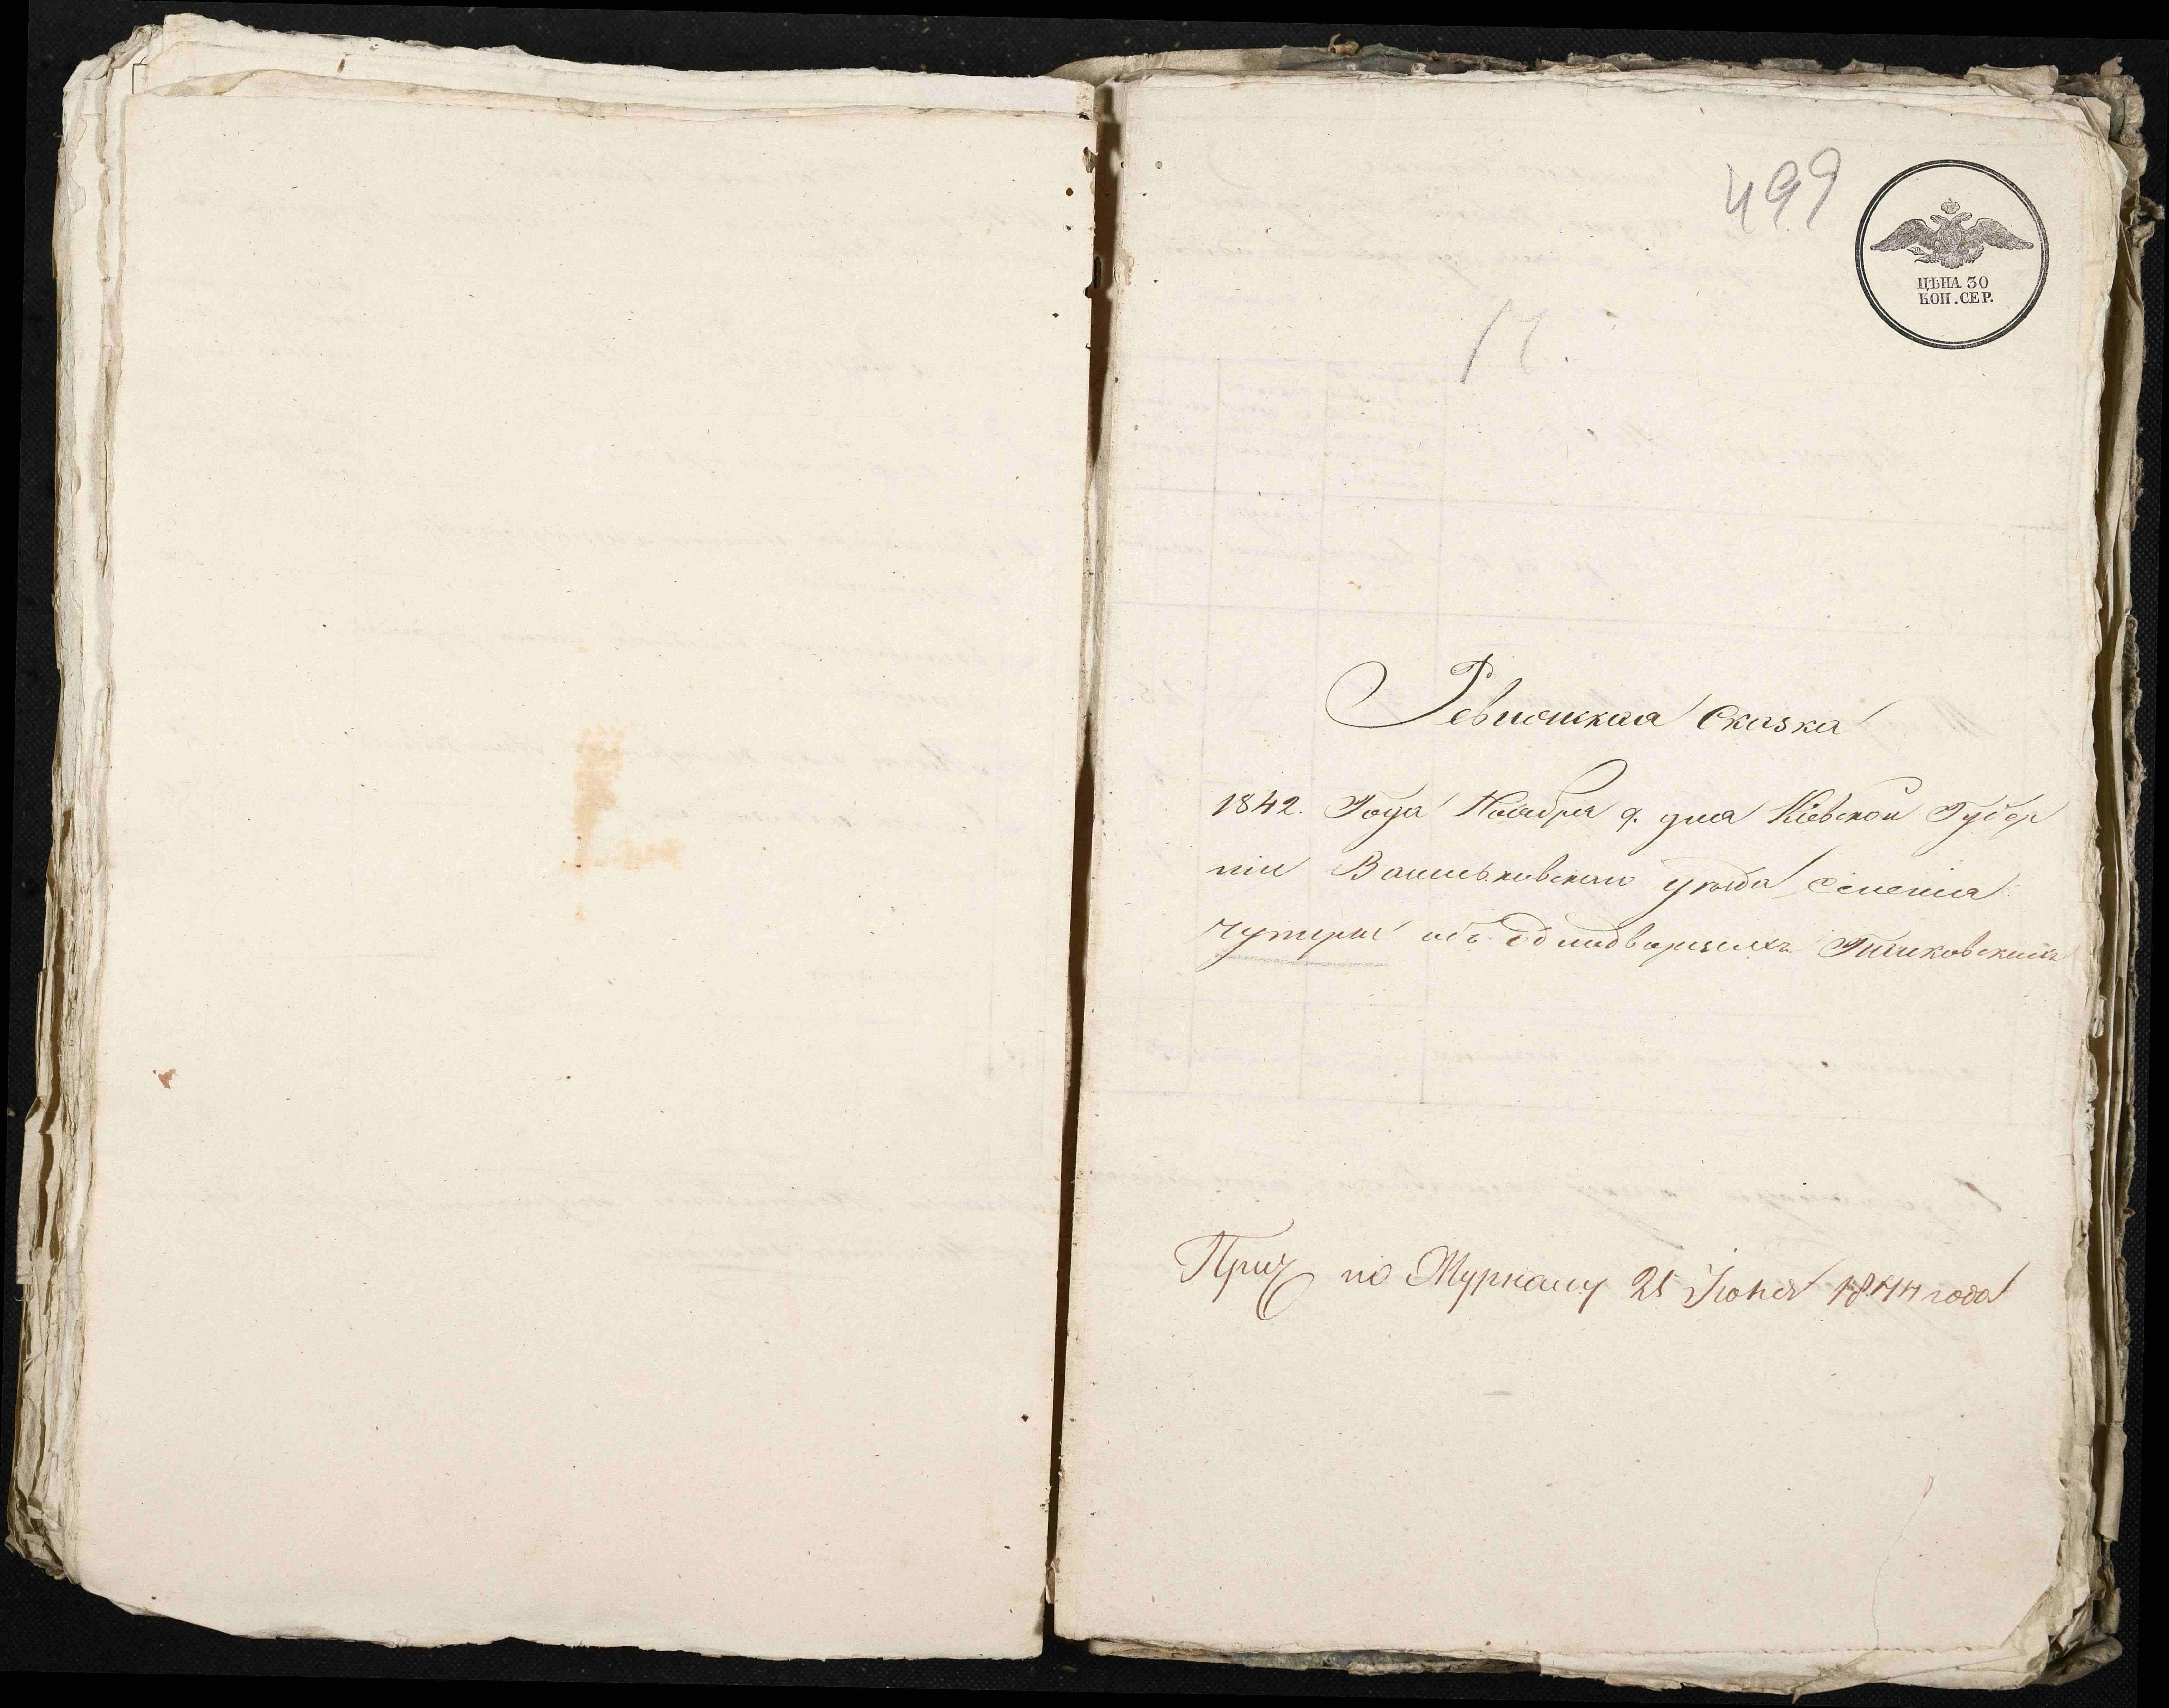 499
ЦѢНА 30
КОП. СЕР.
17.
Ревизская Сказка
1842. Года Ноября 9. дня Кіевской Губер
ніи Васильковского уѣзда селенія
объ Однодворцахъ
Прич по Журналу 21 Іюня 1844 года